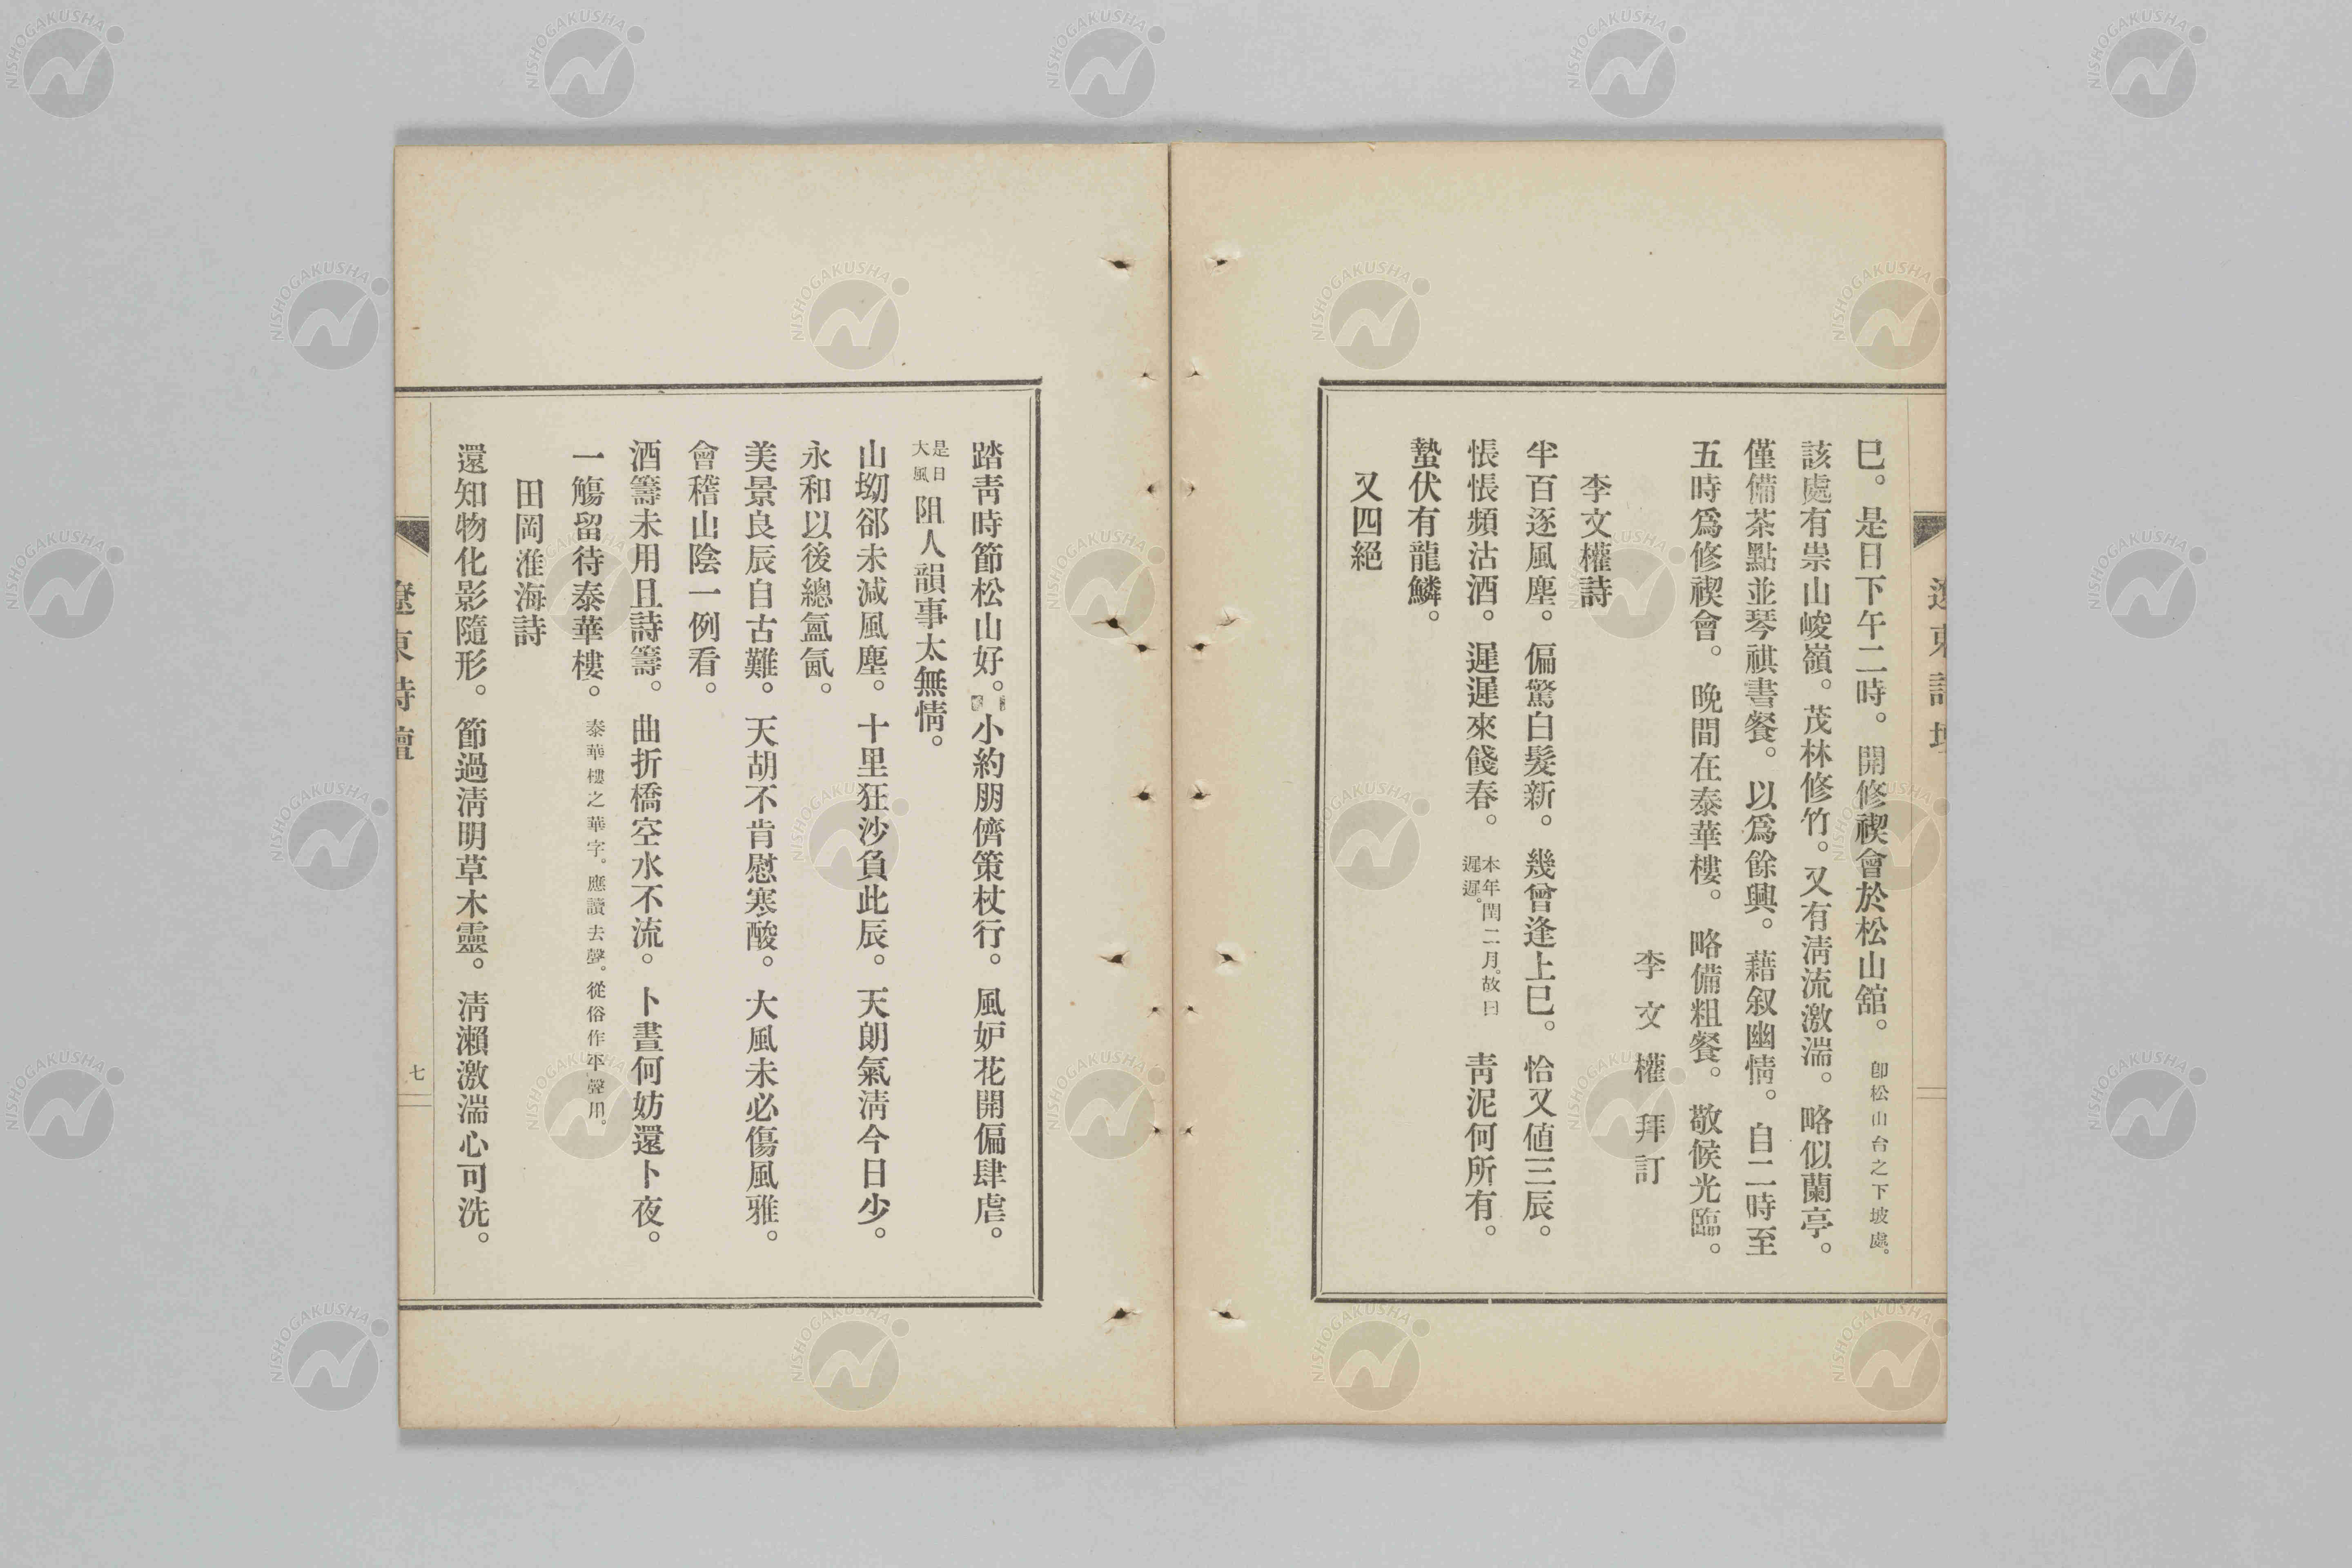 巳。是日下午二時。開修禊會於松山舘。卽松山台之下坡處。
該處有崇山峻嶺。茂林修竹。又有淸流激湍。略似蘭亭。
僅備茶點並琴祺書餐。以爲餘興。藉叙幽情。自二時至
五時爲修禊會。晩間在泰華樓。略備粗餐。敬候光臨。
李文權拜訂
李文權詩
半百逐風塵。偏驚白髮新。幾曾逢上巳。恰又値三辰。
悵悵頻沽酒。遲遲來餞春。本年閏二月。故曰遲遲。靑泥何所有。
蟄伏有龍鱗。
又四絕
踏靑時節松山好。小約朋儕策杖行。風妒花開偏肆虐。
是日大風阻人韻事太無情。
山坳郤未減風塵。十里狂沙負此辰。天朗氣淸今日少。
永和以後總氤氳。
美景良辰自古難。天胡不肯慰寒酸。大風未必傷風雅。
會稽山陰一例看。
酒籌未用且詩籌。曲折橋空水不流。卜晝何妨還卜夜。
一觴留待泰華樓。泰華樓之華字。應讀去聲。從俗作平聲用。
田岡淮海詩
還知物化影隨形。節過淸明草木靈。淸瀨激湍心可洗。
遼東詩壇
七
NISHOGAKUSHA